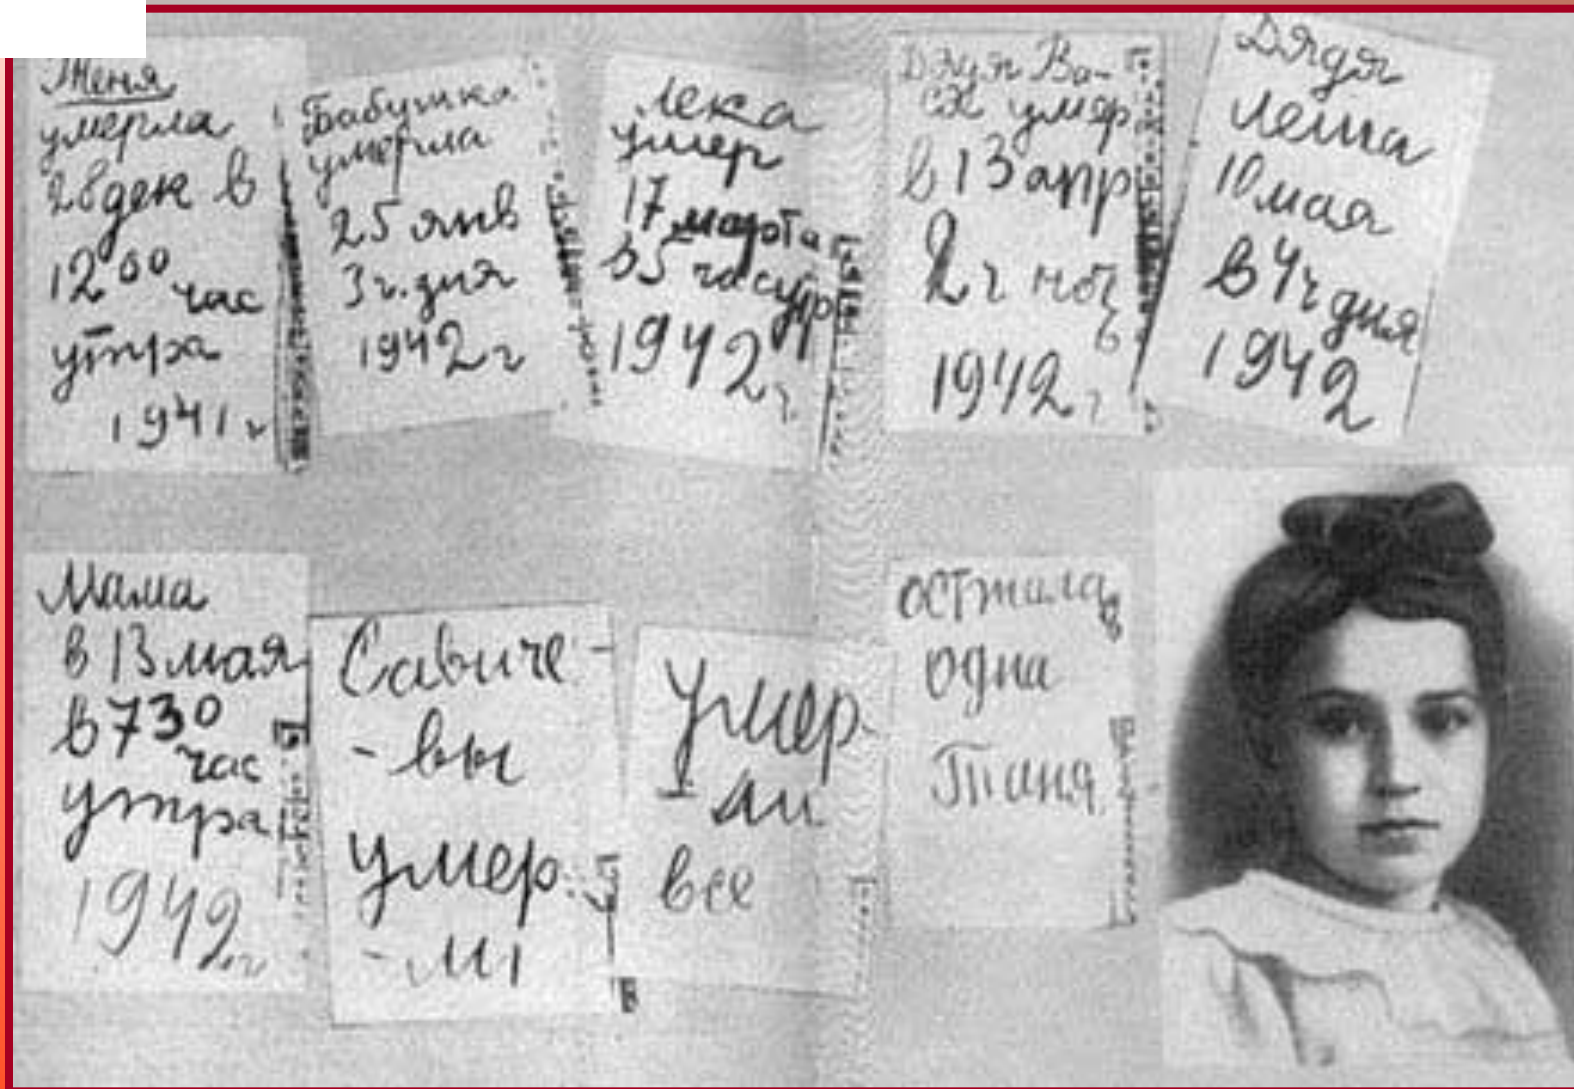 Женя
умерла
28 дек в
12 00 час
утра
1941 г
Бабушка
умерла
25 янв
3 ч. дня
1942 г
Лека
умер
17 марта
в 5 час утр
1942 г.
Дядя Ва-
ся умер
в 13 апр
2 ч ноч
1942 г
Дядя
Леша
10 мая
в 4 ч дня
1942
Мама
в 13 мая
в 7 30
час
утра
1942 г
Савиче-
-вы
умер.
-ли
Умер
-ли
все
осталась
одна
Таня